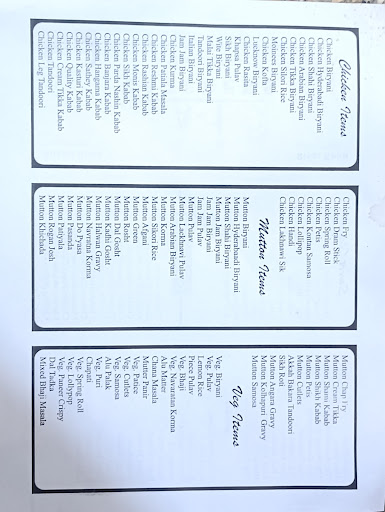 Chicken Items
Chicken Biryani
Chicken Hyderabadi Biryani
Chicken Shahi Biryani
Chicken Arabian Biryani
Chicken Tikka Biryani
Chicken Sikori Rice
Moinees Biryani
Chicken Kofta
Lucknow Biryani
Chicken Rassita
Khapsa Pulav
Sikh Biryani
Wire Biryani
Malai Tikka Biryani
Tandoori Biryani
Italian Biryani
Jam Jam Biryani
Chicken Kurma
Chicken Patiala Masala
Chicken Reshmi Kabab
Chicken Rahimi Kabab
Chicken Monas Kabab
Chicken Sikh Kabab
Chicken Parda Nashin Kabab
Chicken Banjara Kabab
Chicken Hangama Kabab
Chicken Sahey Kabab
Chicken Kasturi Kabab
Chicken Quality Kabab
Chicken Cream Tikka Kabab
Chicken Tandoori
Chicken Leg Tandoori
Chicken Fry
Chicken Drum Stick
Chicken Spring Roll
Chicken Petis
Chicken Konttas Samosa
Chicken Lollipop
Chicken Handi
Chicken Lakhnawi Sik
Mutton Items
Mutton Biryani
Mutton Hyderabaadi Biryani
Mutton Shahi Biryani
Mutton Jam Biryani
Jam Jam Biryani
Jam Jam Pulav
Mutton Pulav
Mutton Lucknawi Pulav
Mutton Arabian Biryani
Mutton Korma
Mutton Sikori Rice
Mutton Afgani
Mutton Green
Mutton Rosht
Mutton Dal Gosht
Mutton Kathi Gosht
Mutton Halwan Gravy
Mutton Navratna Korma
Mutton Do Pyaza
Mutton Pasanda
Mutton Patiyala
Mutton Rogan Josh
Mutton Khichada
Mutton Chap Fry
Mutton Cream Tikka
Mutton Shami Kabab
Mutton Shikh Kabab
Mutton Petis
Mutton Cutlets
Akkah Bakara Tandoori
Sikh Roti
Mutton Angara Gravy
Mutton Kolhapuri Gravy
Mutton Samosa
Veg Items
Veg. Biryani
Veg. Pulav
Lemon Rice
Piece Pulav
Veg. Bhaji
Veg. Navaratan Korma
Alu Matter
Chana Masala
Mutter Panir
Veg. Patice
Veg. Cutlets
Veg. Samosa
Alu Palak
Veg. Puri
Chapati
Veg. Spring Roll
Veg. Lollypop
Veg. Paneer Crispy
Dal Tadka
Mixed Bhaji Masala